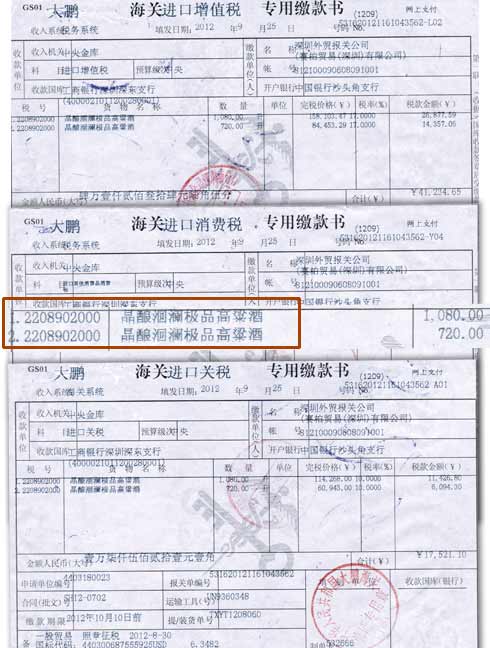 GS01 大鹏 海关进口增值税 专用缴款书 (1209)
收入系统 税务系统 填发日期: 2012 年 9 月 25 日 号码 No. 531620121161043562-L02
收款单位 收入机关 中央金库 缴款单位(人) 名称 深圳外贸报关公司
(赛柏贸易(深圳)有限公司)
科目 进口增值税 预算级次 中央 帐号 812100090608091001
收款国库 工商银行深圳深东支行 开户银行 中国银行沙头角支行
(4000021011200280001)
税号 货物名称 数量 单位 完税价格(¥) 税率(%) 税款金额(¥)
1.2208902000 晶酿洄澜极品高粱酒 1,080.00 升 158,103.47 17.0000 26,877.59
2.2208902000 晶酿洄澜极品高粱酒 720.00 升 84,453.29 17.0000 14,357.06
金额人民币(大写) 肆万壹仟贰佰叁拾肆元陆角伍分 合计(¥) ¥41,234.65
GS01 大鹏 海关进口消费税 专用缴款书 (1209) 网上支付
收入系统 税务系统 填发日期: 2012 年 9 月 25 日 号码 No. 531620121161043562-Y04
收款单位 收入机关 中央金库 缴款单位(人) 名称 深圳外贸报关公司
(赛柏贸易(深圳)有限公司)
科目 预算级次 中央 帐号 812100090608091001
收款国库 工商银行深圳深东支行 开户银行 中国银行沙头角支行
1.2208902000 晶酿洄澜极品高粱酒 1,080.00
2.2208902000 晶酿洄澜极品高粱酒 720.00
GS01 大鹏 海关进口关税 专用缴款书 (1209) 网上支付
收入系统 海关系统 填发日期: 2012 年 9 月 25 日 号码 No. 531620121161043562 A01
收款单位 收入机关 中央金库 缴款单位(人) 名称 深圳外贸报关公司
(赛柏贸易(深圳)有限公司)
科目 进口关税 预算级次 中央 帐号 812100090608091001
收款国库 工商银行深圳深东支行 开户银行 中国银行沙头角支行
(4000021011200280001)
税号 货物名称 数量 单位 完税价格(¥) 税率(%) 税款金额(¥)
1.2208902000 晶酿洄澜极品高粱酒 1,080.00 升 114,268.00 10.0000 11,426.80
2.2208902000 晶酿洄澜极品高粱酒 720.00 升 60,943.00 10.0000 6,094.30
金额人民币(大写) 壹万柒仟伍佰贰拾壹元壹角 合计(¥) ¥17,521.10
申请单位编号 4403180023 报关单编号 531620121161043562 收款国库(银行)
合同(批文)号 SH12-0702 运输工具(号) UN9360348
缴款期限 2012年10月10日前 提/装货单号 TXYT1208060
备注 一般贸易 照章征税 2012-8-30
国标代码: 440300687555925USD 6.3482 制单 532666